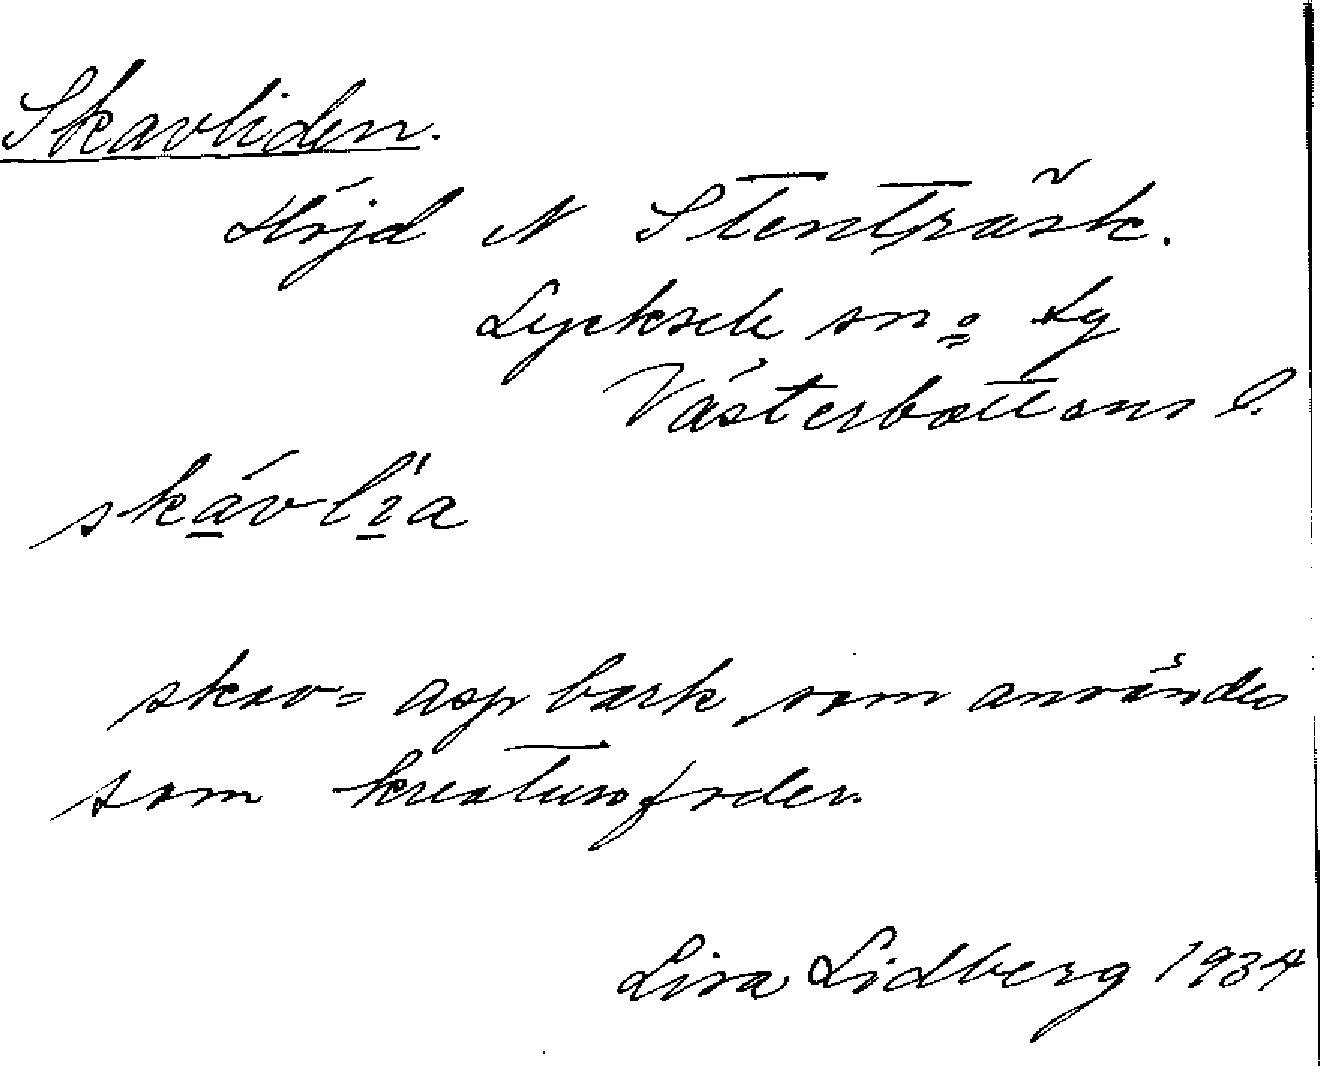 Skavliden.
Höjd N Stenträsk.
Lycksele sn o Lg
Västerbottens l.
skávlìa
skav = asp bark som användes
som kreatursfoder.
Lisa Lidberg 1934